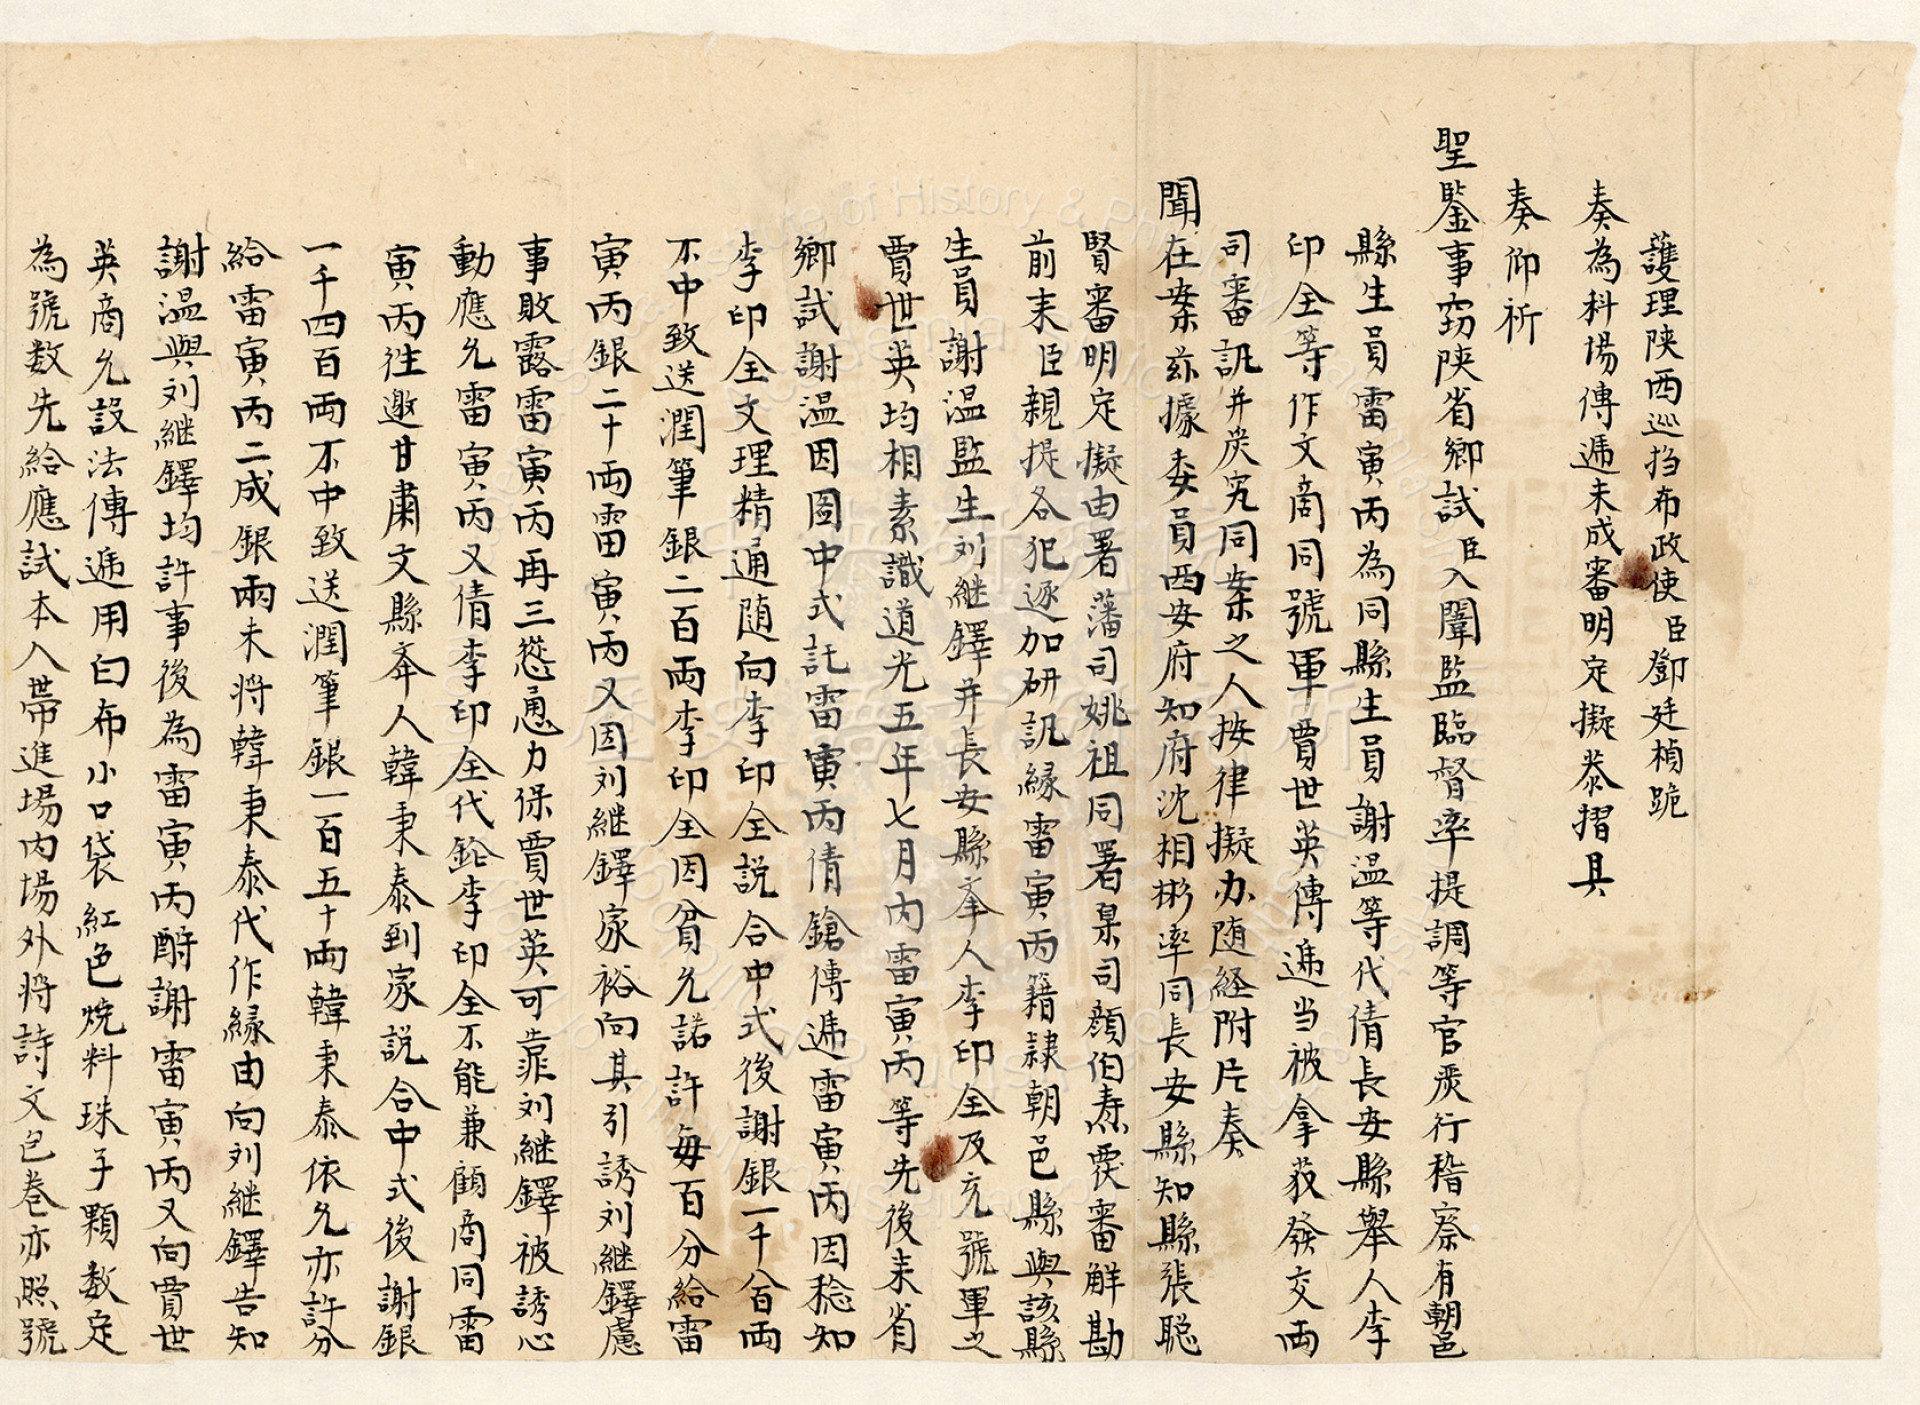 護理陝西巡撫布政使臣鄧廷楨跪
奏為科場傳遞未成審明定擬恭摺具
奏仰祈
聖鑒事窃陝省鄉試臣入闈監臨督率提調等官嚴行稽察有朝邑
縣生員雷寅丙為同縣生員謝温等代倩長安縣舉人李
印全等作文商同號軍賈世英傳遞当被拿获發交両
司審訊并嚴究同案之人按律擬办随経附片奏
聞在案兹據委員西安府知府沈相彬率同長安縣知縣張聡
賢審明定擬由署藩司姚祖同署臬司顔伯燾覆審觧勘
前来臣親提各犯逐加研訊緣雷寅丙籍隸朝邑縣與該縣
生員謝温監生刘継鐸并長安縣夆人李印全及充號軍之
賈世英均相素識道光五年七月内雷寅丙等先後来省
鄉試謝温因圖中式託雷寅丙倩鎗傳遞雷寅丙因稔知
李印全文理精通随向李印全説合中式後謝銀一千八百両
不中致送潤筆銀二百両李印全因貧允諾許每百分給雷
寅丙銀二十両雷寅丙又因刘継鐸家裕向其引誘刘継鐸慮
事敗露雷寅丙再三慫恿力保賈世英可靠刘継鐸被誘心
動應允雷寅丙又倩李印全代鎗李印全不能兼顧商同雷
寅丙徃邀甘肅文縣夲人韓秉泰到家説合中式後謝銀
一千四百両不中致送潤筆銀一百五十両韓秉泰依允亦許分
給雷寅丙二成銀兩未将韓秉泰代作縁由向刘継鐸告知
謝温與刘継鐸均許事後為雷寅丙酧謝雷寅丙又向賈世
英商允設法傳遞用白布小口袋紅色燒料珠子顆数定
為號数先給應試本人帶進場内場外将詩文包卷亦照號